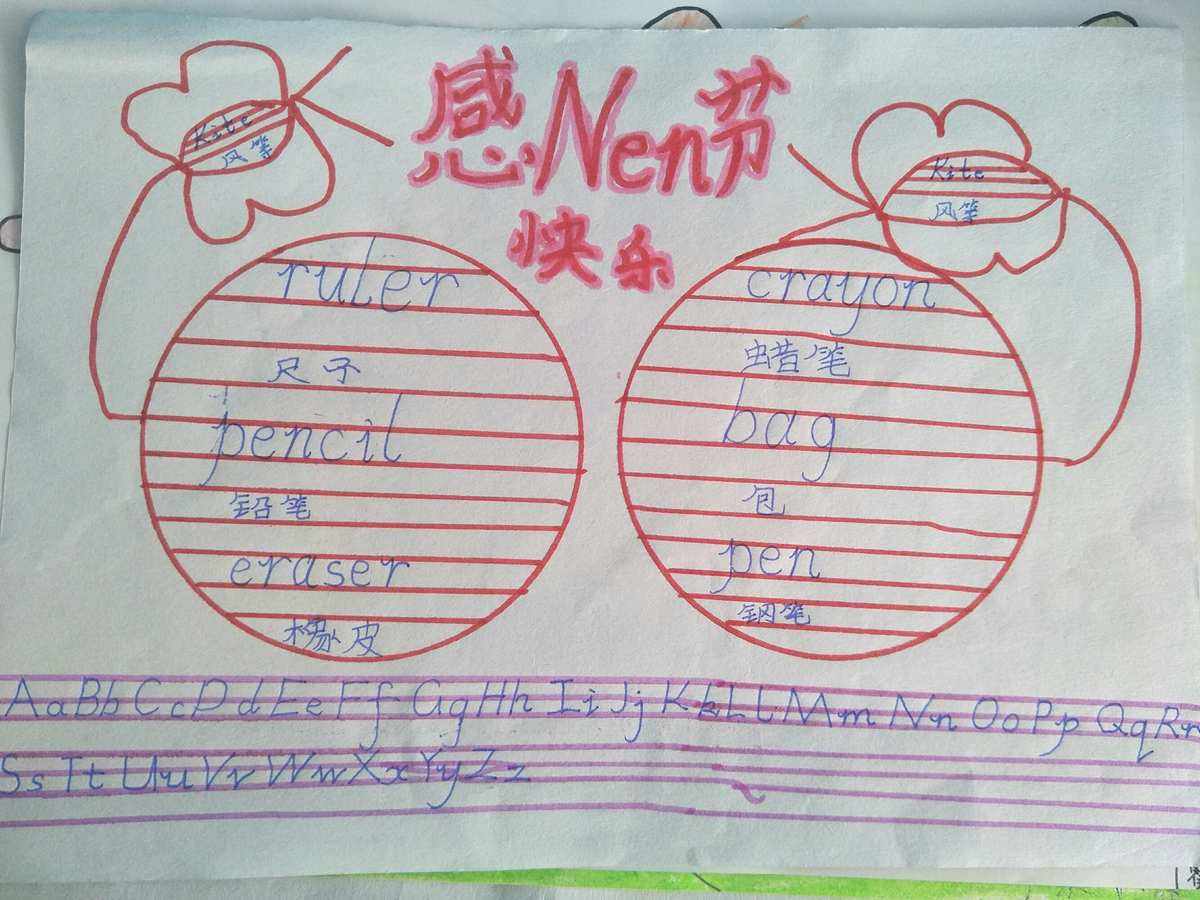 感Nen节
快乐
Kite
风筝
Kite
风筝
ruler
尺子
pencil
铅笔
eraser
橡皮
crayon
蜡笔
bag
包
pen
钢笔
AaBbCcDdEeFfGgHhIiJjKkLlMmNnOoPpQqRr
SsTtUuVvWwXxYyZz